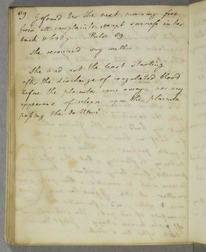 found her the next morning free
from all complaints, except soreness in her
back & body. Pulse 89.
She recovered very well.
She had not the least
after the discharge of coagulated blood
before the placenta came away, nor any
appearance of when the placenta